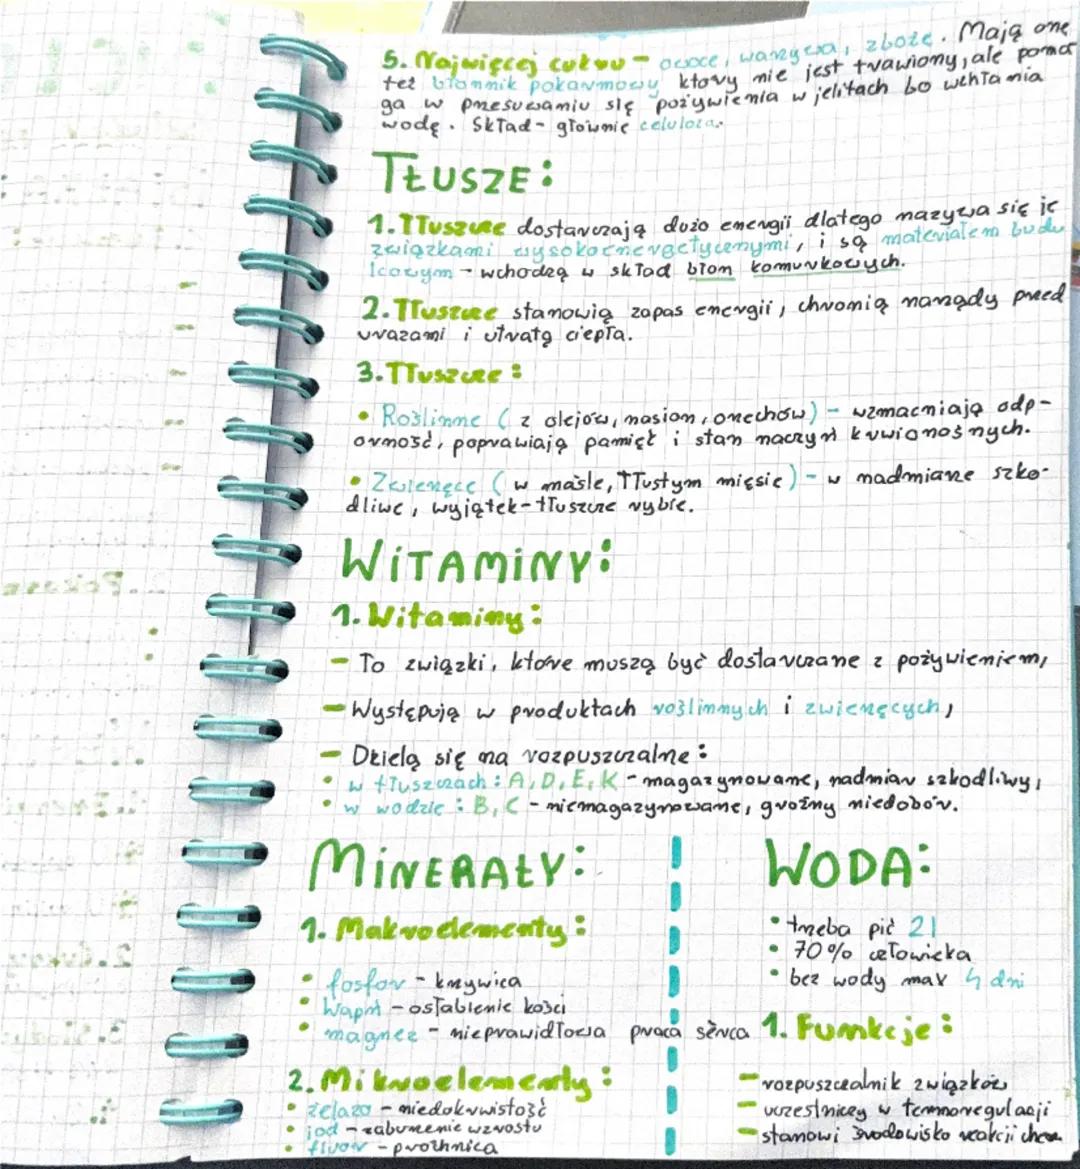 5. Najwięcej cukru - owoce, warzywa, zboże. Mają one
też błonnik pokarmowy który nie jest trawiony, ale poma
ga w przesuwaniu się pożywienia w jelitach bo wchłania
wodę. Skład - głównie celuloza.
TŁUSZE:
1. Tłuszcze dostarczają dużo energii dlatego nazywa się je
związkami wysokoenergetycznymi, i są materiałem budu
lcowym - wchodzą w skład błon komurkowych.
2. Tłuszcze stanowią zapas energii, chronią narządy przed
urazami i utratą ciepła.
3. Tłuszcze:
• Roślinne (z olejów, nasion, orzechów) - wzmacniają odp-
orność, poprawiają pamięć i stan naczyń krwionośnych.
• Zwierzęce (w maśle, tłustym mięsie) - w nadmiarze szko-
dliwe, wyjątek - tłuszcze rybie.
WITAMINY:
1. Witaminy:
- To związki, które muszą być dostarczane z pożywieniem,
- Występują w produktach roślinnych i zwierzęcych,
- Dzielą się na rozpuszczalne:
• w tłuszczach: A, D, E, K - magazynowane, nadmiar szkodliwy,
• w wodzie: B, C - niemagazynowane, groźny niedobór.
MINERAŁY:
1. Makroelementy:
• fosfor - krzywica
• wapń - osłabienie kości
• magnez - nieprawidłowa praca serca
2. Mikroelementy:
• żelazo - niedokrwistość
• jod - zaburzenie wzrostu
• fluor - próchnica
WODA:
• trzeba pić 2l
• 70% człowieka
• bez wody max 4 dni
1. Funkcje:
- rozpuszczalnik związków
- uczestniczy w termoregulacji
- stanowi środowisko reakcji chem